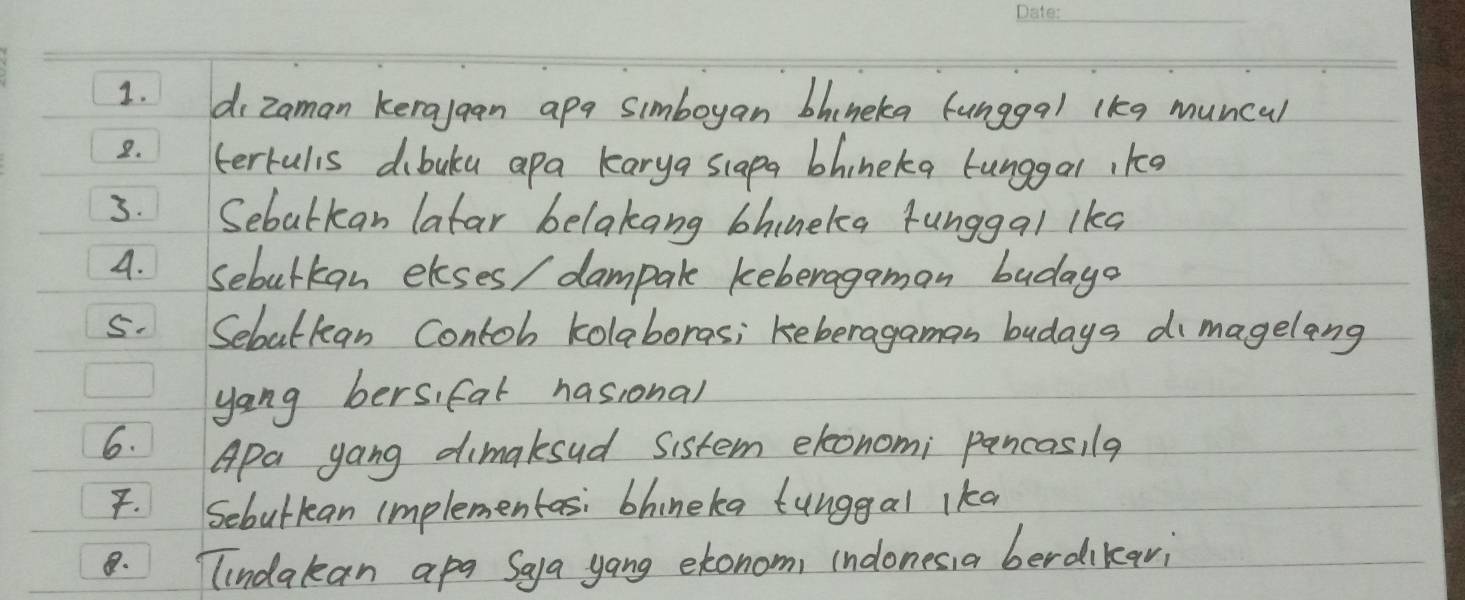 Date:
1. di zaman kerajaan apa simboyan bhineka tunggal ika muncul
2. tertulis dibuku apa karya siapa bhineka tunggal ika
3. Sebutkan latar belakang bhineka tunggal ika
4. sebutkan ekses/dampak keberagaman budaya
5. Sebutkan Contoh kolaborasi keberagaman budaya di magelang
yang bersifat nasional
6. Apa yang dimaksud sistem ekonomi pancasila
7. Sebutkan implementasi bhineka tunggal ika
8. Tindakan apa saja yang ekonomi indonesia berdikari